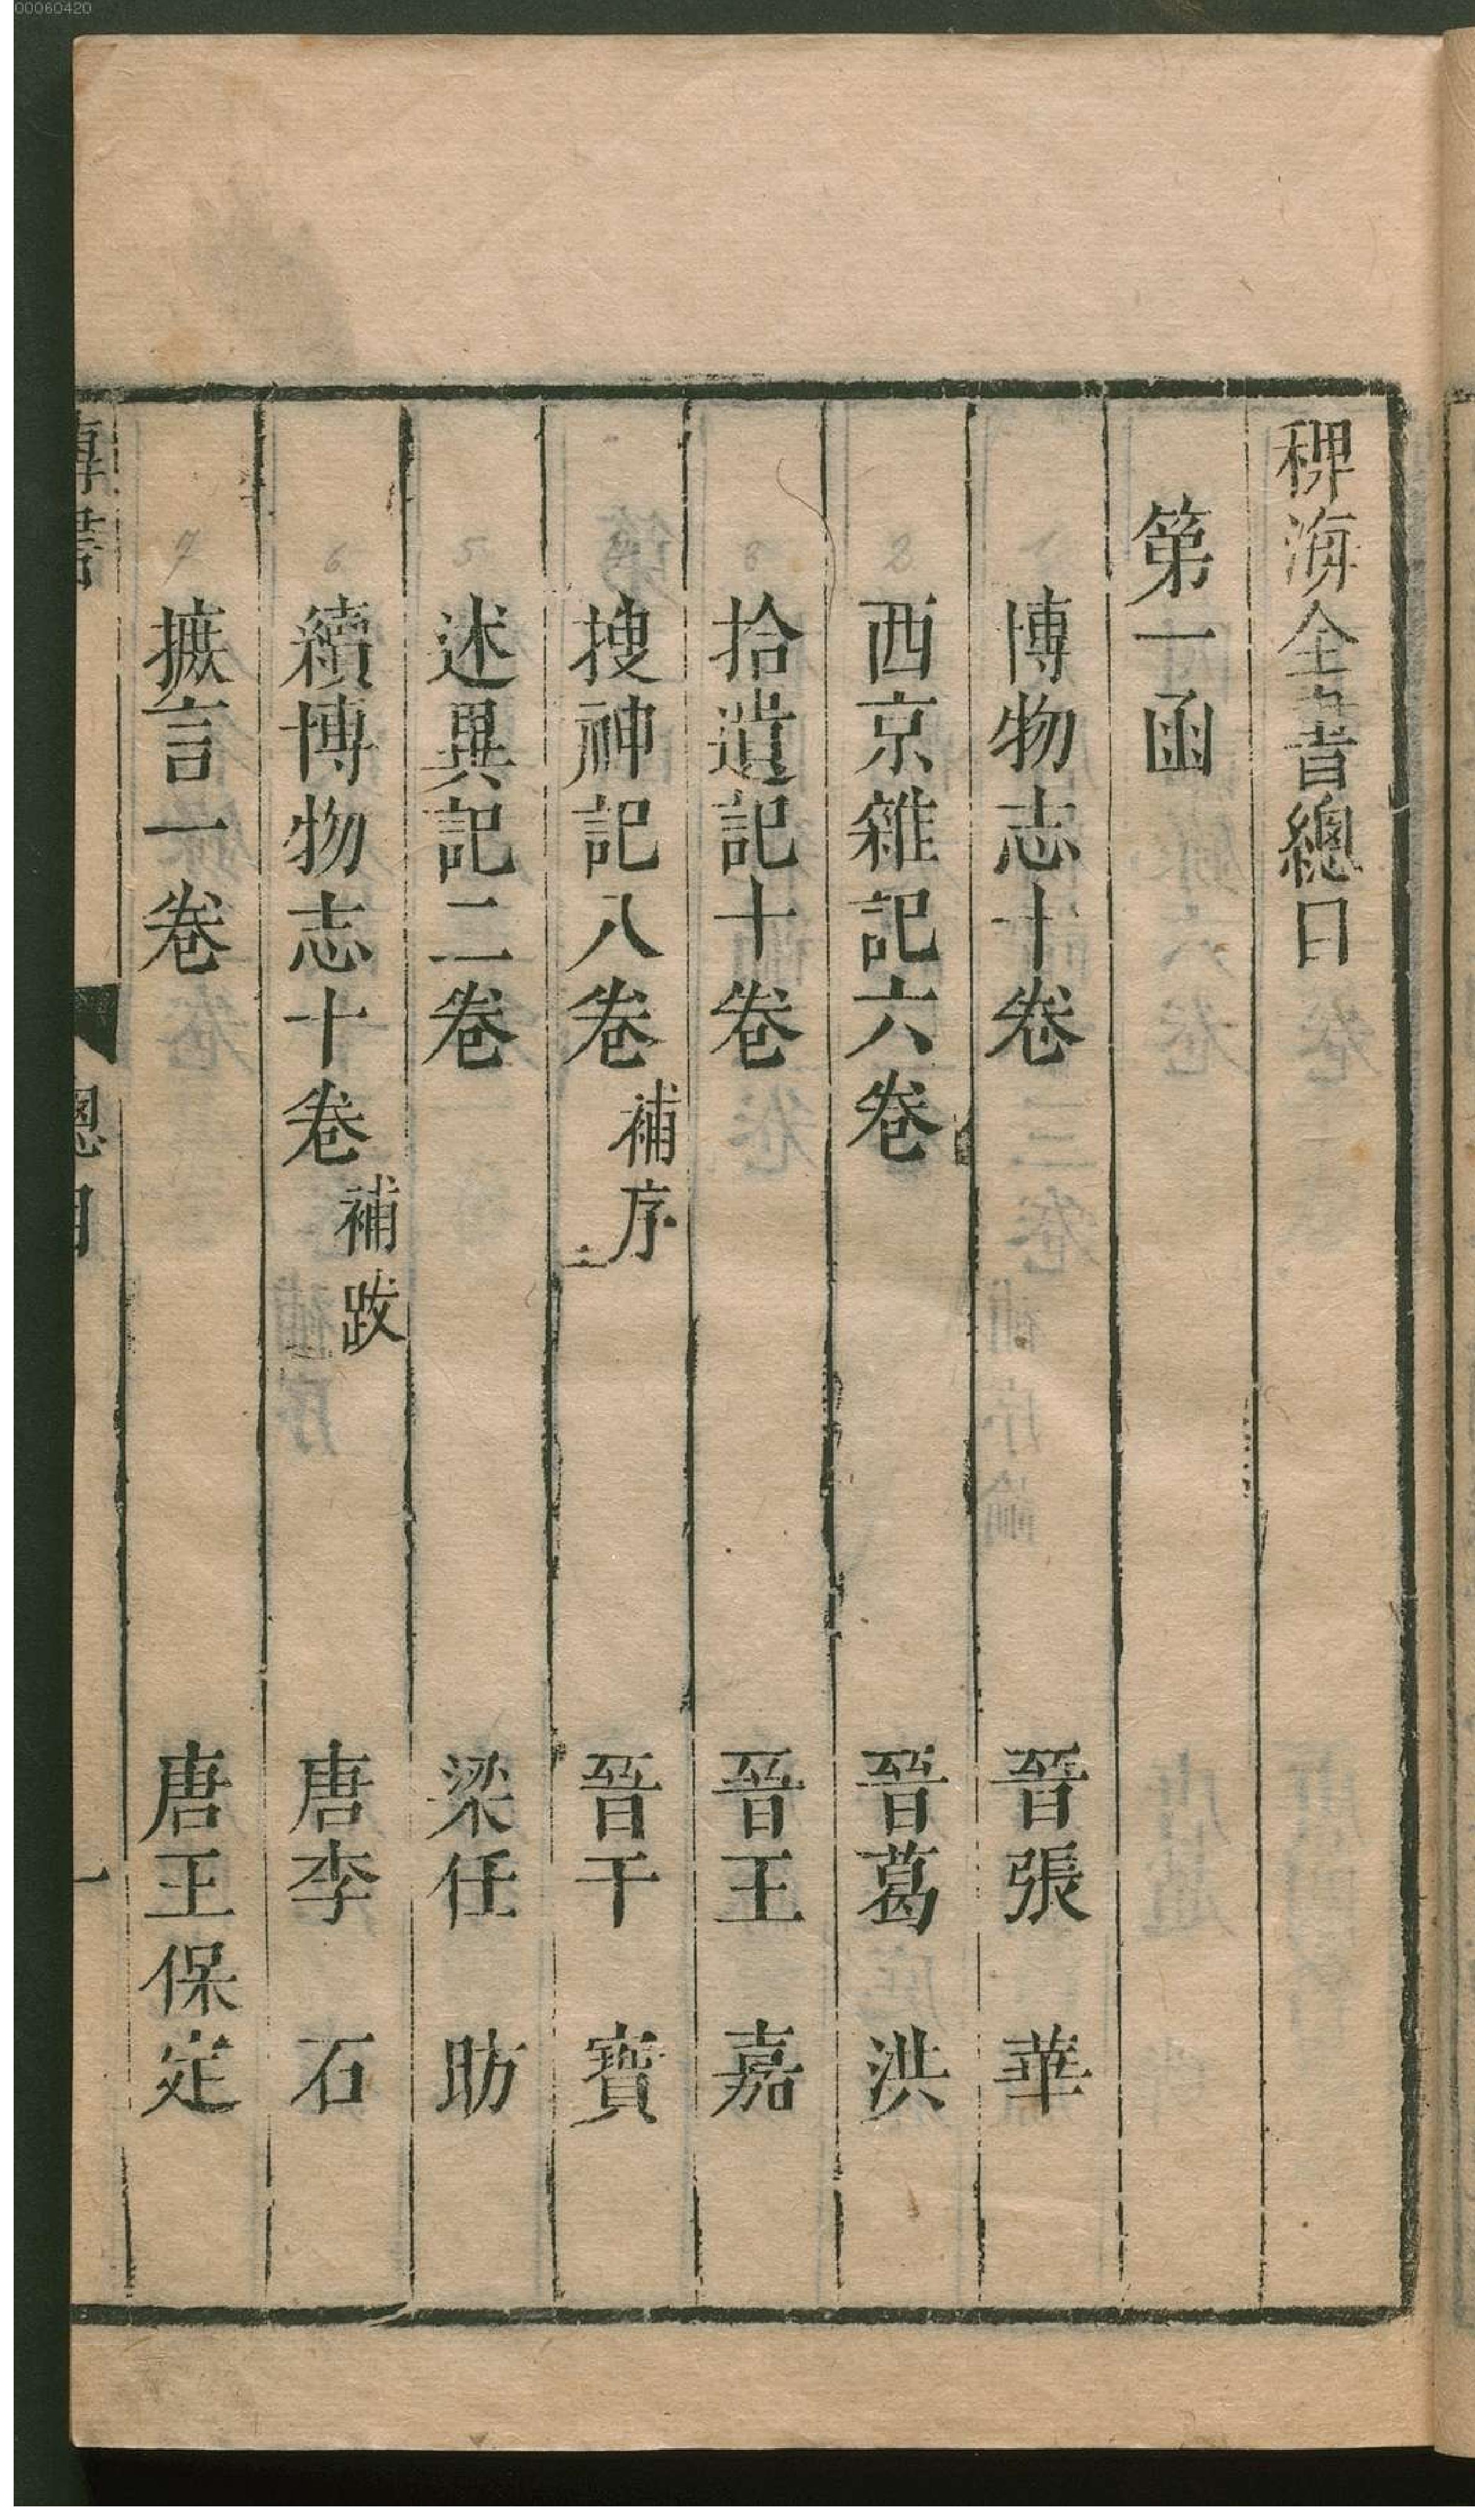 00060420
稗海全書總目
第一函
博物志十卷 晉張 華
西京雜記六卷 晉葛 洪
拾遺記十卷 晉王 嘉
搜神記八卷 補序 晉干 寶
述異記二卷 梁任 昉
續博物志十卷 補跋 唐李 石
摭言一卷 唐王保定
總目 一